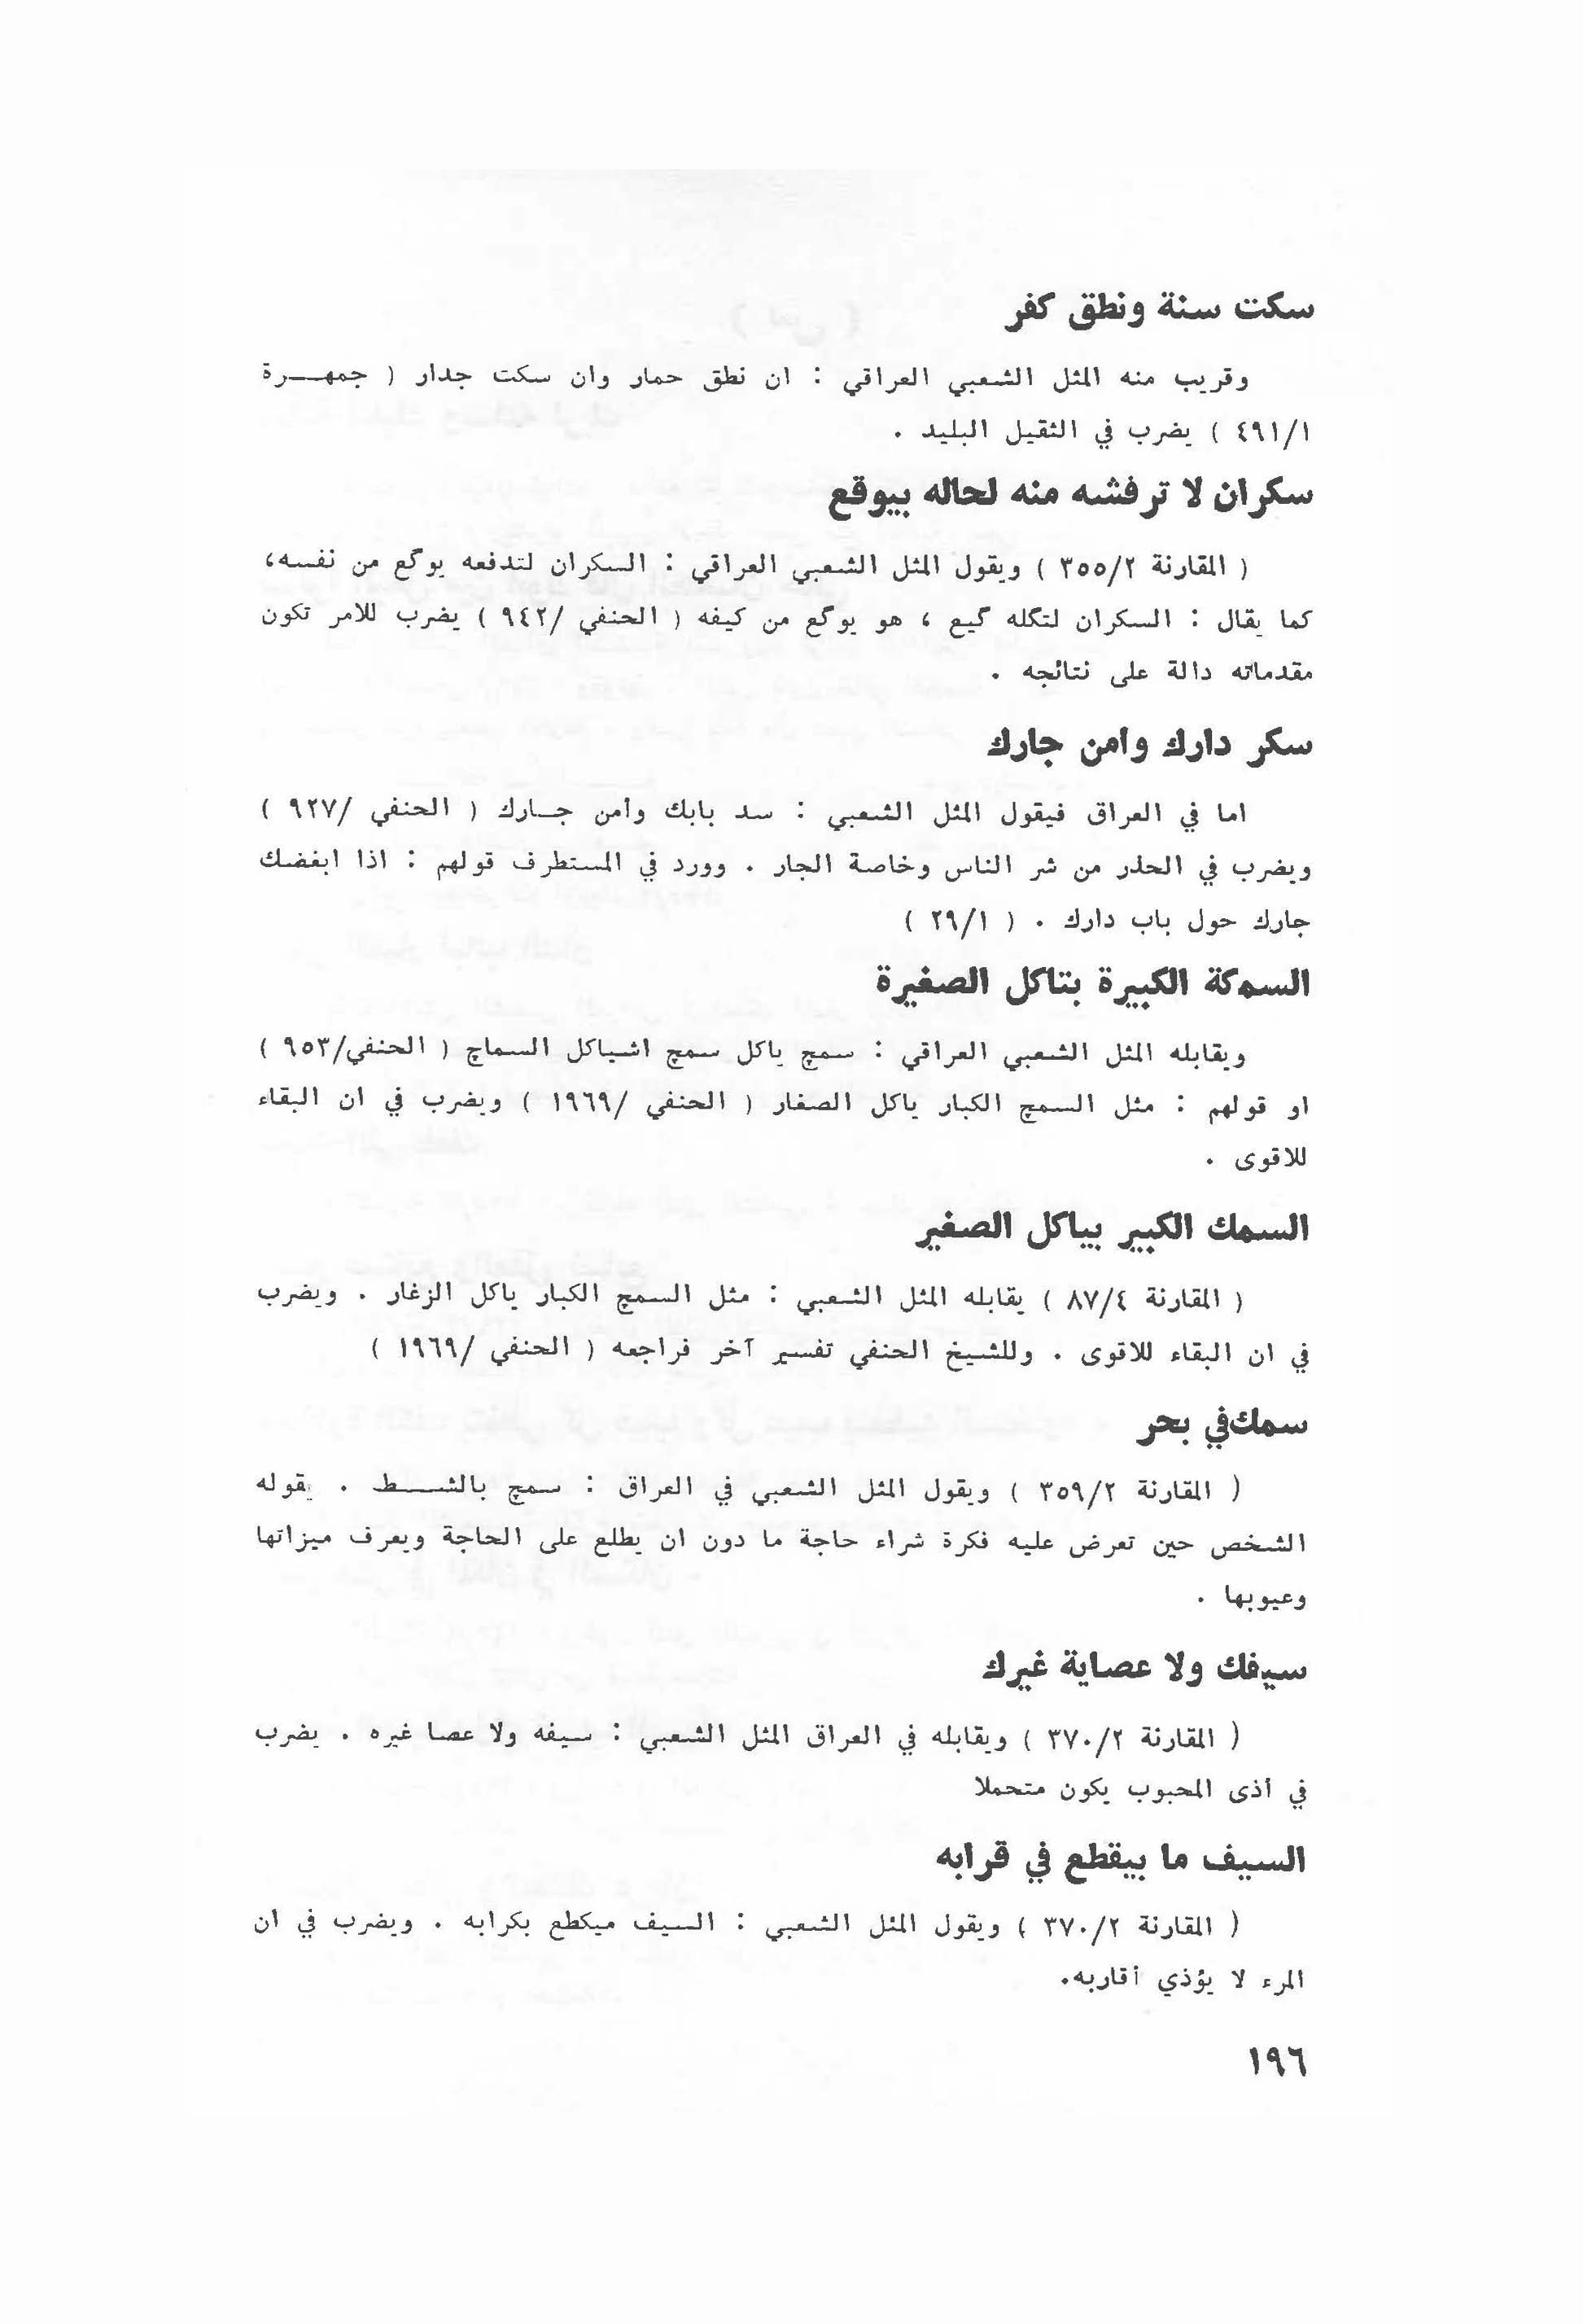 سكت سنة ونطق كفر
وقريب منه المثل الشعبي العراقي : ان نطق حمار وان سكت جدار ( جمهرة
٤٩١/١ ) يضرب في الثقيل البليد .
سكران لا ترفشه منه لحاله بيوقع
( المقارنة ٣٥٥/٢ ) ويقول المثل الشعبي العراقي : السكران لتدفعه يوگع من نفسه،
كما يقال : السكران لتگله گيع ، هو يوگع من كيفه ( الحنفي /٩٤٢ ) يضرب للامر تكون
مقدماته دالة على نتائجه .
سكر دارك وامن جارك
اما في العراق فيقول المثل الشعبي : سد بابك وأمن جارك ( الحنفي /٩٢٧ )
ويضرب في الحذر من شر الناس وخاصة الجار . وورد في المستطرف قولهم : اذا ابغضك
جارك حول باب دارك . ( ٢٩/١ )
السمكة الكبيرة بتاكل الصغيرة
ويقابله المثل الشعبي العراقي : سمچ ياكل سمچ اشياكل السماچ ( الحنفي/٩٥٣ )
او قولهم : مثل السمچ الكبار ياكل الصغار ( الحنفي /١٩٦٩ ) ويضرب في ان البقاء
للاقوى .
السمك الكبير بياكل الصغير
( المقارنة ٨٧/٤ ) يقابله المثل الشعبي : مثل السمچ الكبار ياكل الزغار . ويضرب
في ان البقاء للاقوى . وللشيخ الحنفي تفسير آخر فراجعه ( الحنفي /١٩٦٩ )
سمك في بحر
( المقارنة ٣٥٩/٢ ) ويقول المثل الشعبي في العراق : سمچ بالشط . يقوله
الشخص حين تعرض عليه فكرة شراء حاجة ما دون ان يطلع على الحاجة ويعرف ميزاتها
وعيوبها .
سيفك ولا عصاية غيرك
( المقارنة ٣٧٠/٢ ) ويقابله في العراق المثل الشعبي : سيفه ولا عصا غيره . يضرب
في أذى المحبوب يكون متحملا
السيف ما بيقطع في قرابه
( المقارنة ٣٧٠/٢ ) ويقول المثل الشعبي : السيف ميكطع بكرابه . ويضرب في ان
المرء لا يؤذي أقاربه.
١٩٦